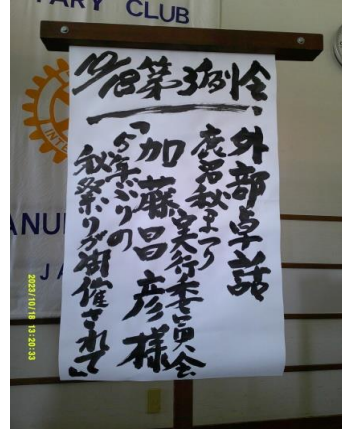 TARY CLUB
10/18第3例会
外部卓話
鹿沼秋まつり
実行委員会
加藤昌彦様
「4年ぶりの
秋祭りが開催されて」
ANU
JA
2023/10/18 13:20:33